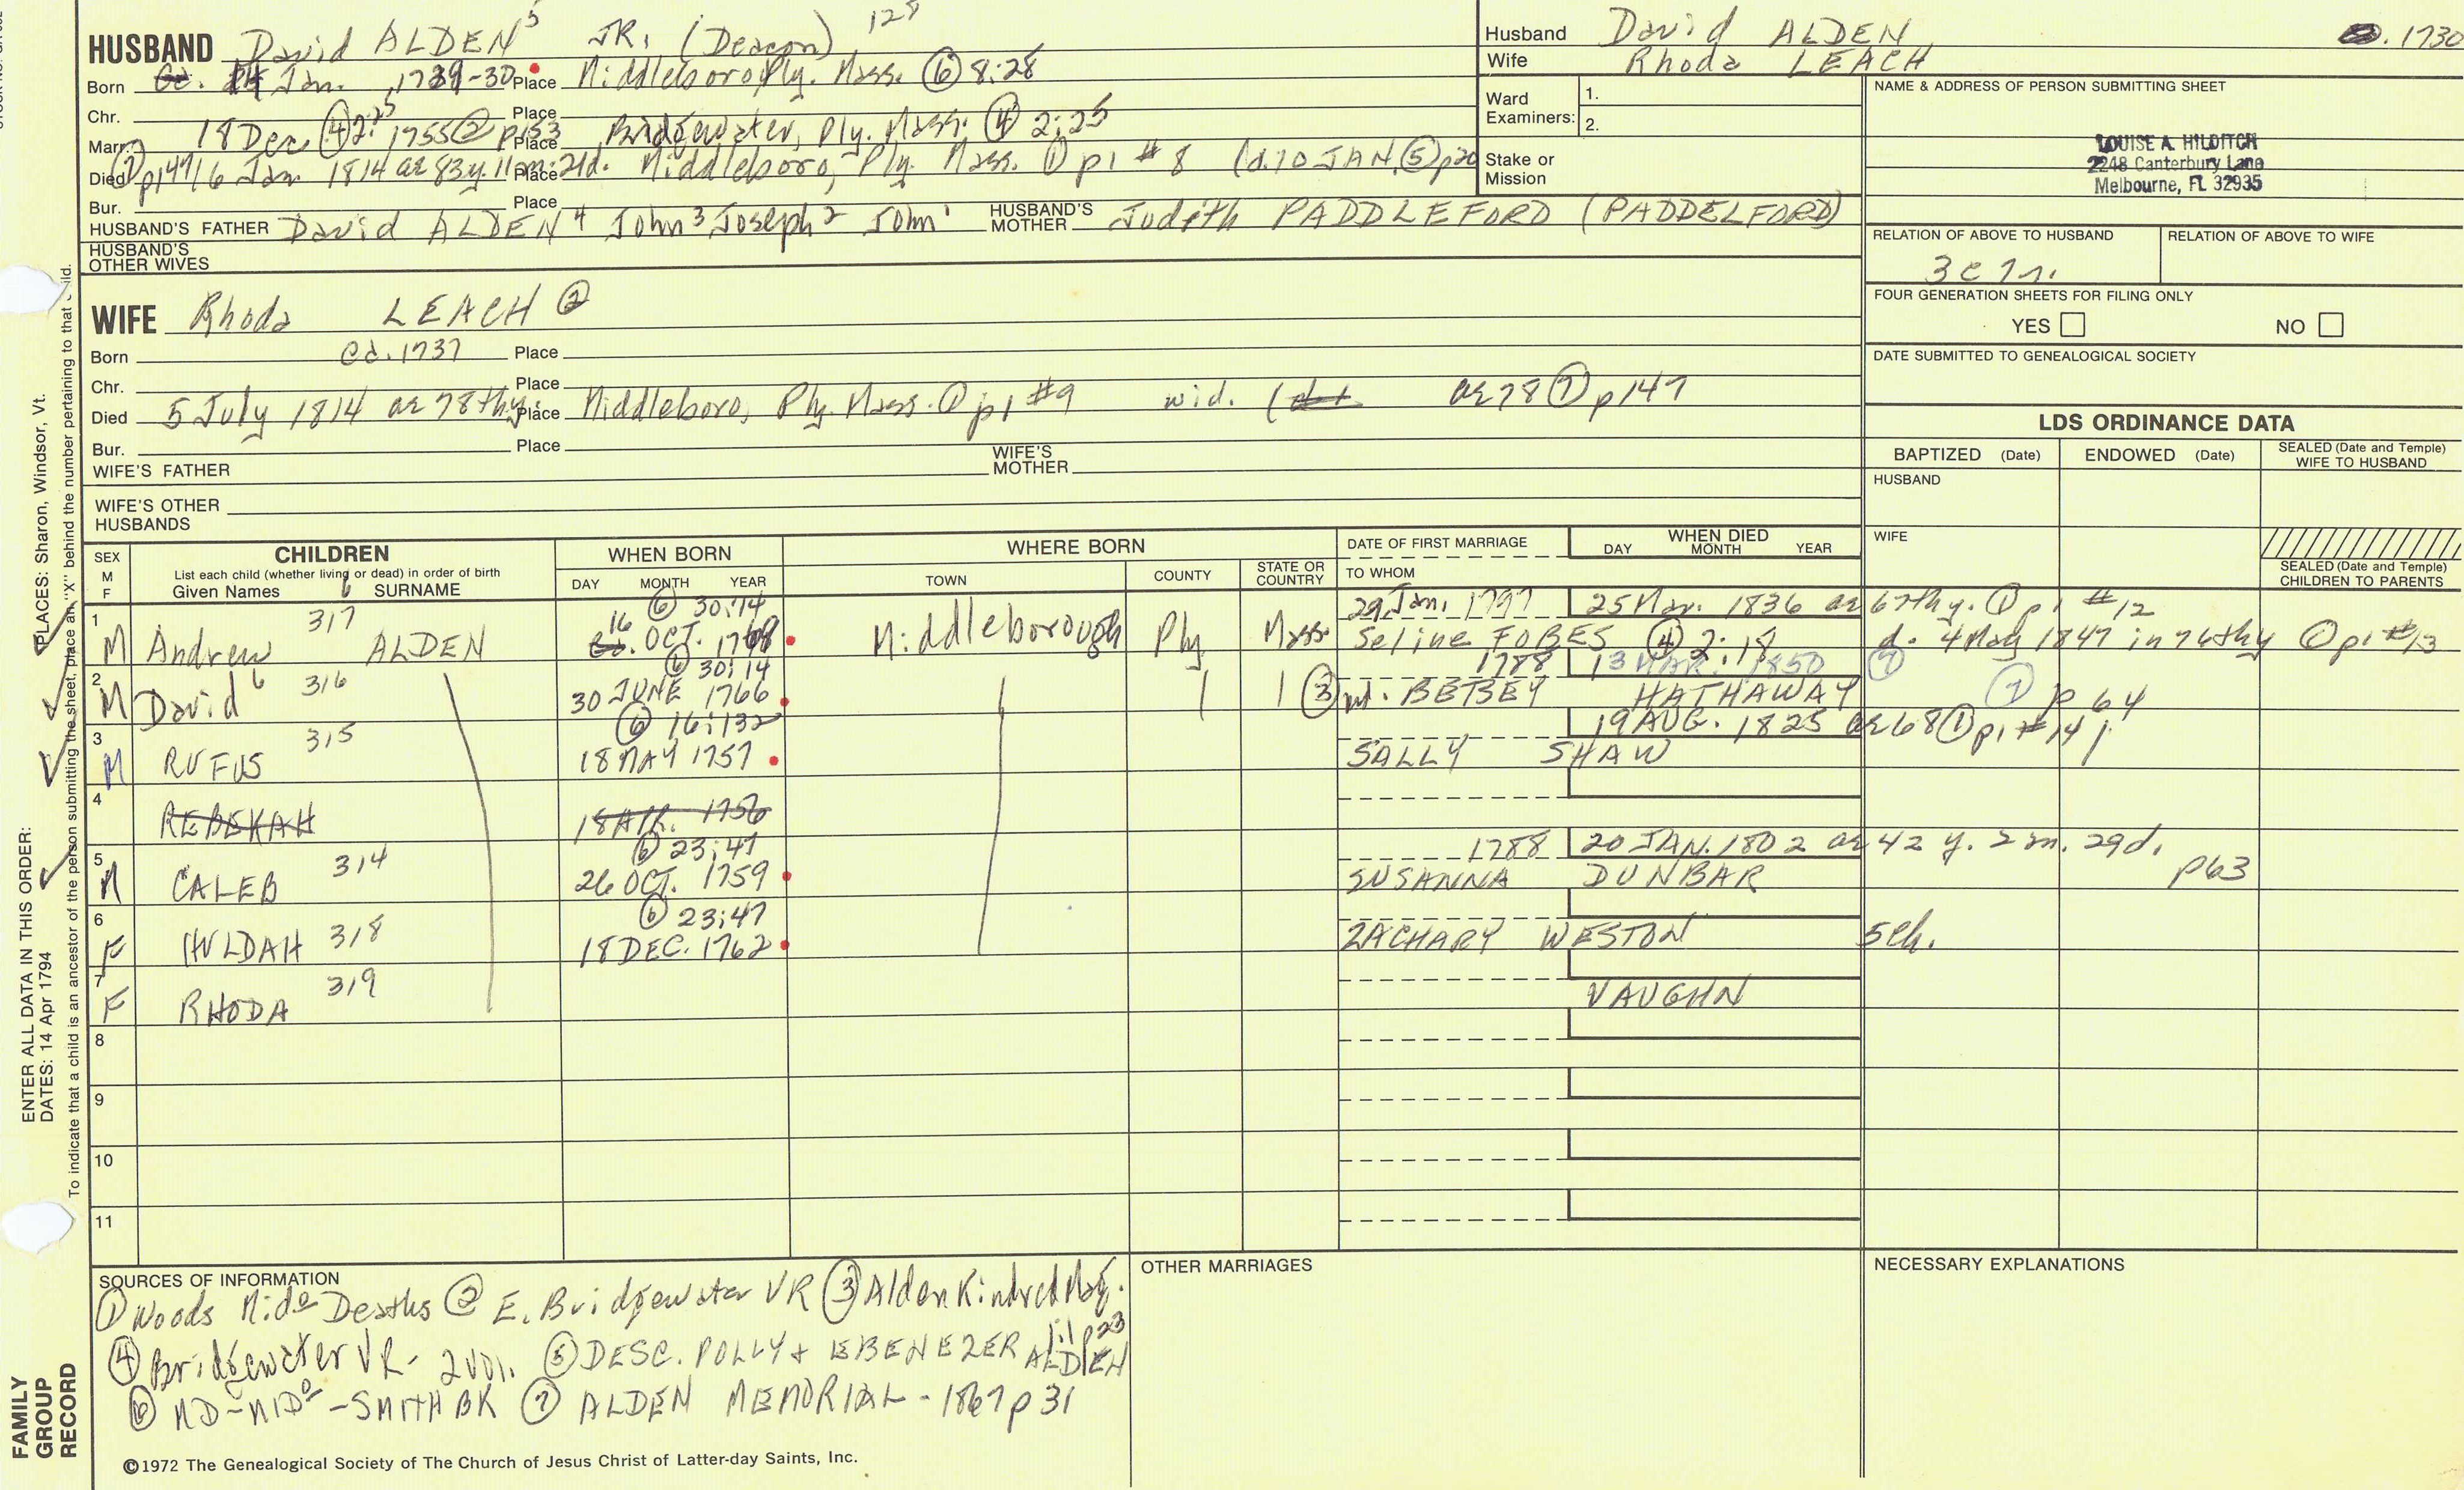 HUSBAND David ALDEN 5 JR. (Deacon) 128
Born Jan. 1729-30 Place Middleboro, Ply. Mass. ⑥ 8:28
Chr. Place
Marr. 18 Dec. ④ 2:25 1755 ② p153 Place Bridgewater, Ply. Mass. ④ 2:25
Died ⑦ p147 / 6 Jan 1814 ae 83y. 11m. 21d. Place Middleboro, Ply. Mass. ① p1 #8 (d. 10 JAN. ⑤ p20
Bur. Place
HUSBAND'S FATHER David ALDEN 4 John 3 Joseph 2 John 1 HUSBAND'S MOTHER Judith PADDLEFORD (PADDELFORD)
HUSBAND'S OTHER WIVES
WIFE Rhoda LEACH ②
Born Ca. 1737 Place
Chr. Place
Died 5 July 1814 ae 78thy. Place Middleboro, Ply. Mass. ① p1 #9 wid. ( ae 78 ⑦ p147
Bur. Place
WIFE'S FATHER WIFE'S MOTHER
WIFE'S OTHER HUSBANDS
Husband David ALDEN 1730
Wife Rhoda LEACH
Ward Examiners: 1.
2.
Stake or Mission
NAME & ADDRESS OF PERSON SUBMITTING SHEET
LOUISE A. HILDITCH
2248 Canterbury Lane
Melbourne, FL 32935
RELATION OF ABOVE TO HUSBAND RELATION OF ABOVE TO WIFE
FOUR GENERATION SHEETS FOR FILING ONLY
YES NO
DATE SUBMITTED TO GENEALOGICAL SOCIETY
LDS ORDINANCE DATA
BAPTIZED (Date) ENDOWED (Date) SEALED (Date and Temple) WIFE TO HUSBAND
HUSBAND
WIFE
SEALED (Date and Temple) CHILDREN TO PARENTS
SEX M F
CHILDREN
List each child (whether living or dead) in order of birth
Given Names 6 SURNAME
WHEN BORN
DAY MONTH YEAR
WHERE BORN
TOWN COUNTY STATE OR COUNTRY
DATE OF FIRST MARRIAGE
TO WHOM
WHEN DIED
DAY MONTH YEAR
1 317 ⑥ 30:14 29 Jan. 1797 25 Mar. 1836 ae 67thy. ① p1 #12
M Andrew ALDEN 16 OCT. 1768 Middleborough Ply Mass Seline FOBES ④ 2:18 d. 4 May 1847 in 76thy ① p1 #13
2 ⑥ 30:14 1788 13 MAR. 1850
M David 6 316 30 JUNE 1766 ③ m. BETSEY HATHAWAY ⑦ p 64
3 315 ⑥ 16:132 19 AUG. 1825 ae 68 ① p1 #14
M RUFUS 18 MAY 1757 SALLY SHAW
4
REBEKAH 1756
5 314 ⑥ 23:47 1788 20 JAN. 1802 ae 42 y. 2 m. 29d.
M CALEB 26 OCT. 1759 SUSANNA DUNBAR p63
6 ⑥ 23:47
F HULDAH 318 18 DEC. 1762 ZACHARY WESTON 5ch.
7 319
F RHODA VAUGHN
8
9
10
11
SOURCES OF INFORMATION
① Woods Mido Deaths ② E. Bridgewater VR ③ Alden Kindred Mag.
④ Bridgewater VR- 2vol. ⑤ DESC. POLLY + EBENEZER ALDEN p23
⑥ MD-MIDo-SMITH BK ⑦ ALDEN MEMORIAL - 1867 p 31
OTHER MARRIAGES
NECESSARY EXPLANATIONS
©1972 The Genealogical Society of The Church of Jesus Christ of Latter-day Saints, Inc.
FAMILY GROUP RECORD
ENTER ALL DATA IN THIS ORDER:
DATES: 14 Apr 1794
PLACES: Sharon, Windsor, Vt.
To indicate that a child is an ancestor of the person submitting the sheet, place an "X" behind the number pertaining to that child.